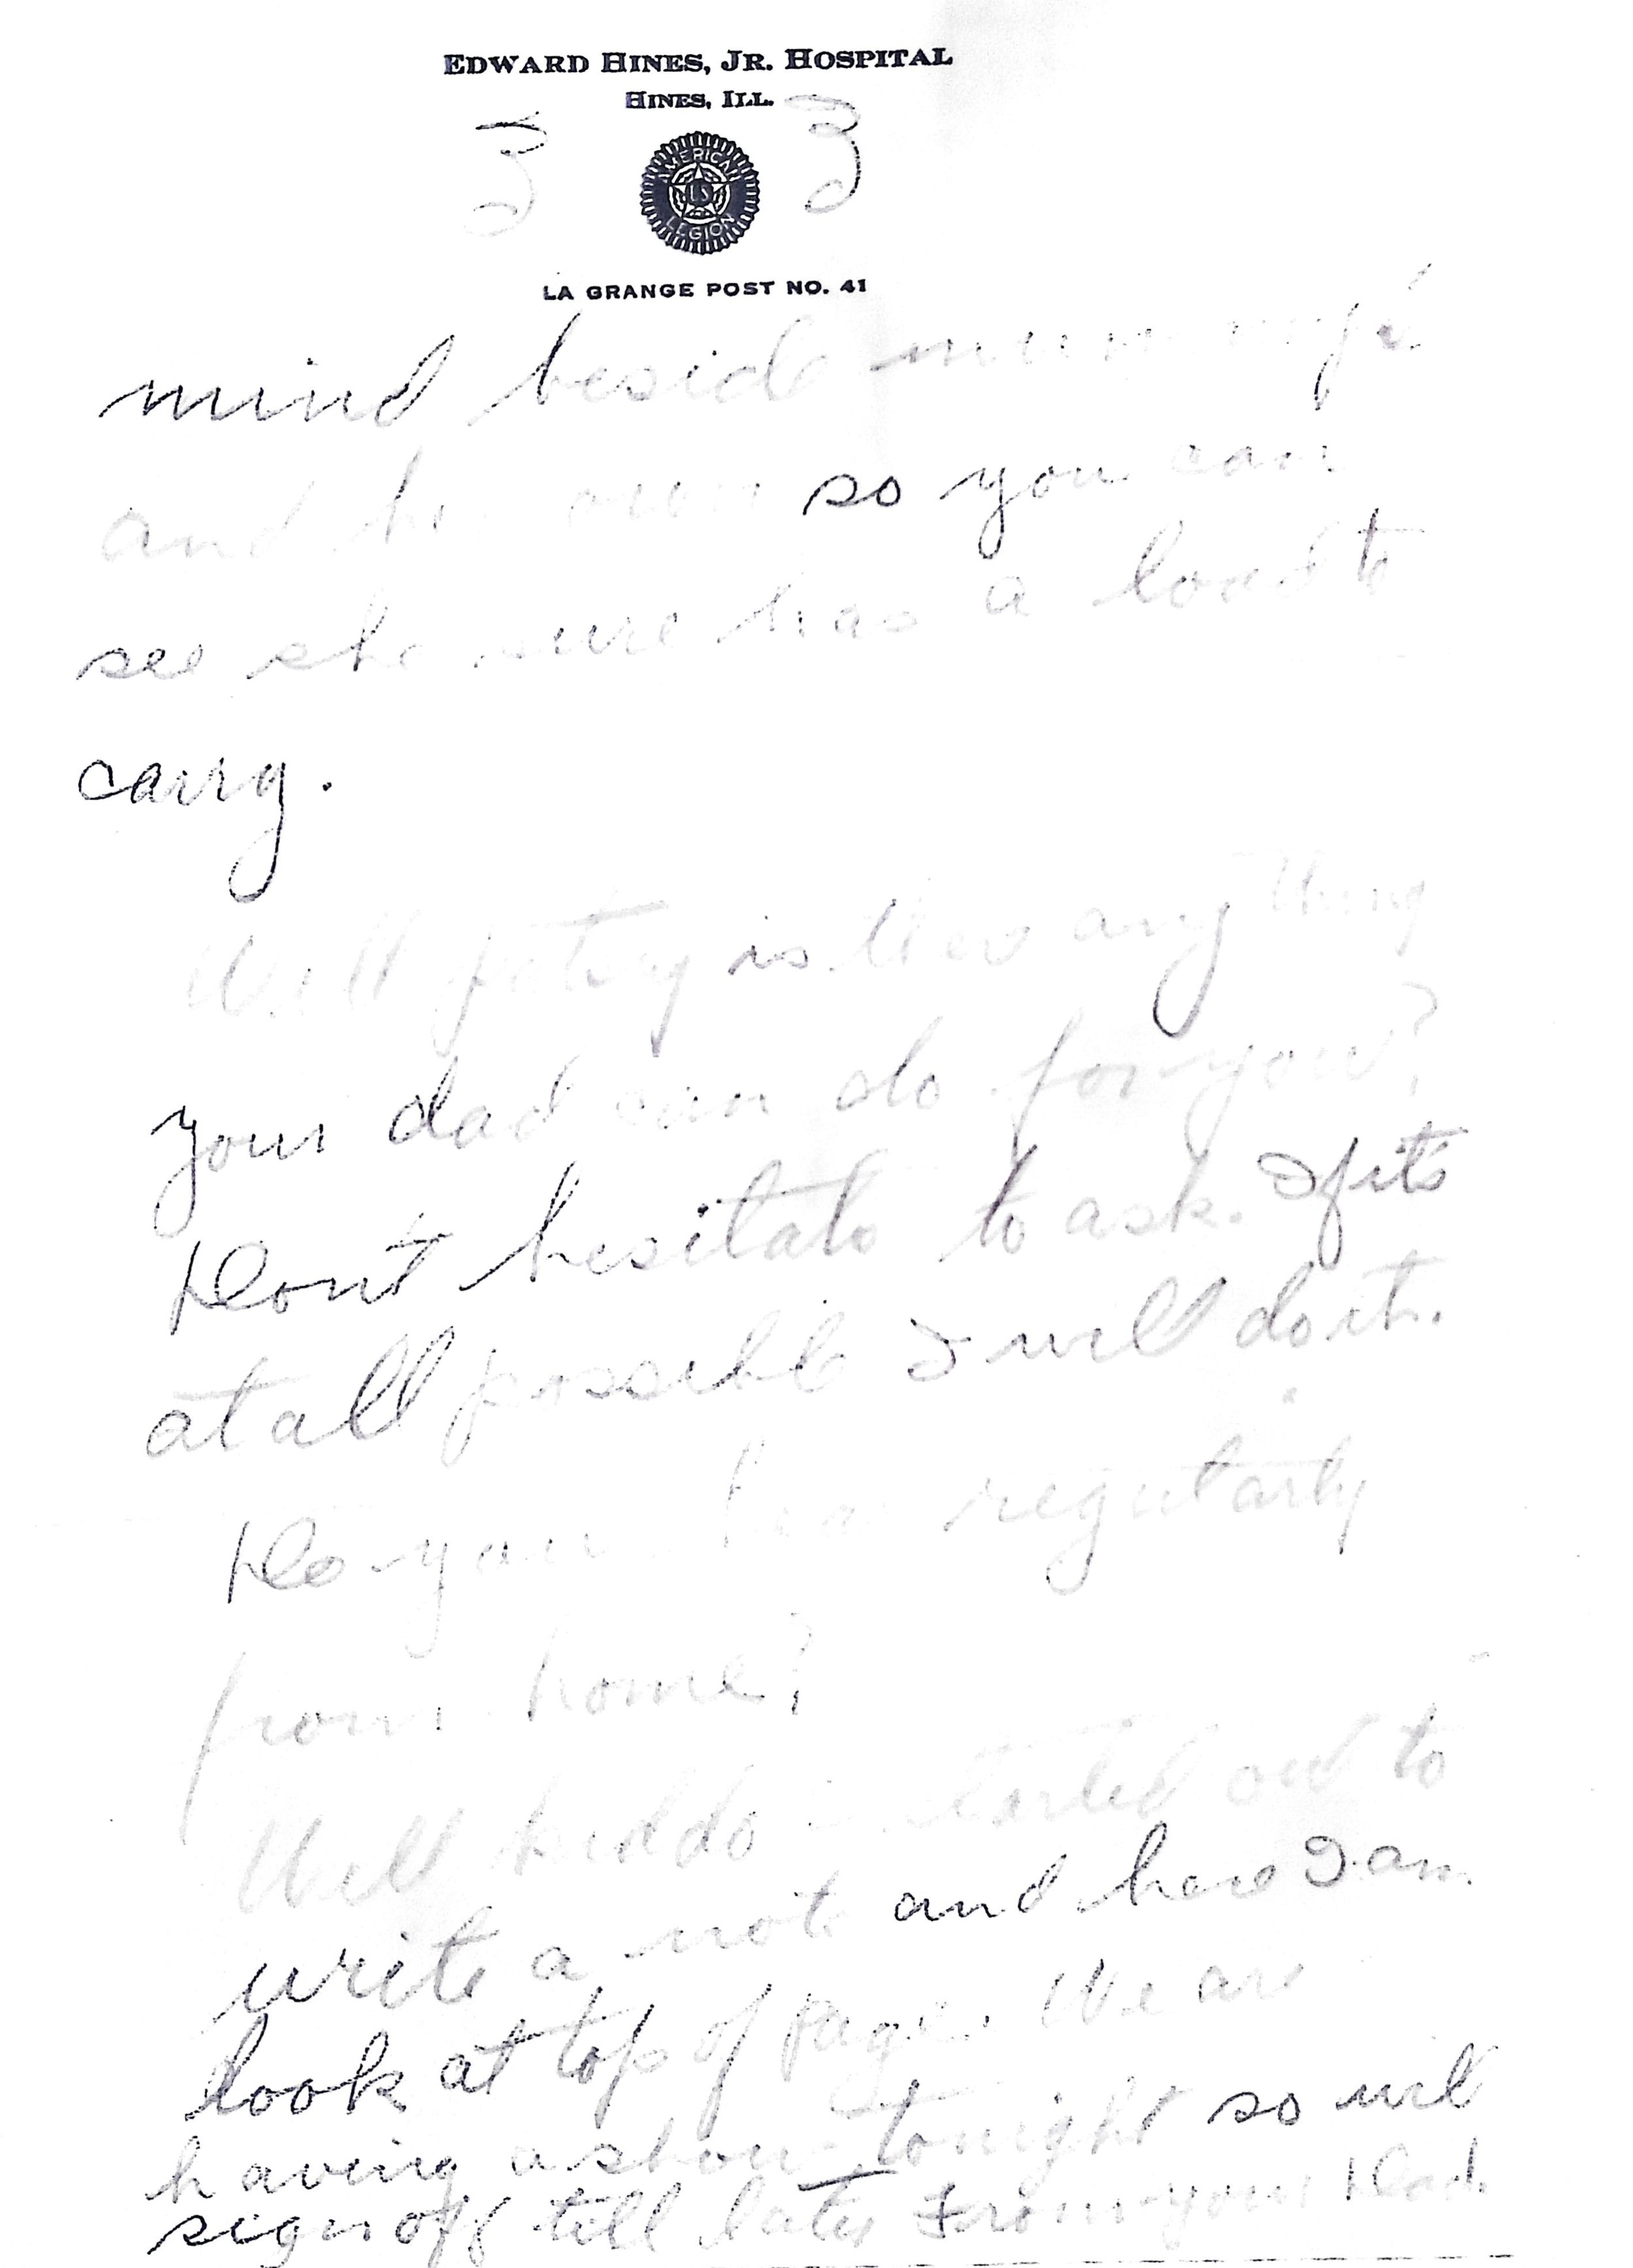 EDWARD HINES, JR. HOSPITAL
HINES, ILL.
3 3
AMERICAN LEGION
US
LA GRANGE POST NO. 41
mind beside
and her own so you can
see she sure has a load to
carry.
Well patsy is ther anything
your dad can do for you?
Dont hesitate to ask. If its
at all possible I will do it.
Do you hear regularly
from home?
Well kiddo I started out to
write a note and here I am
look at top of page. We are
having a show tonight so will
sign off till later From your Dad.